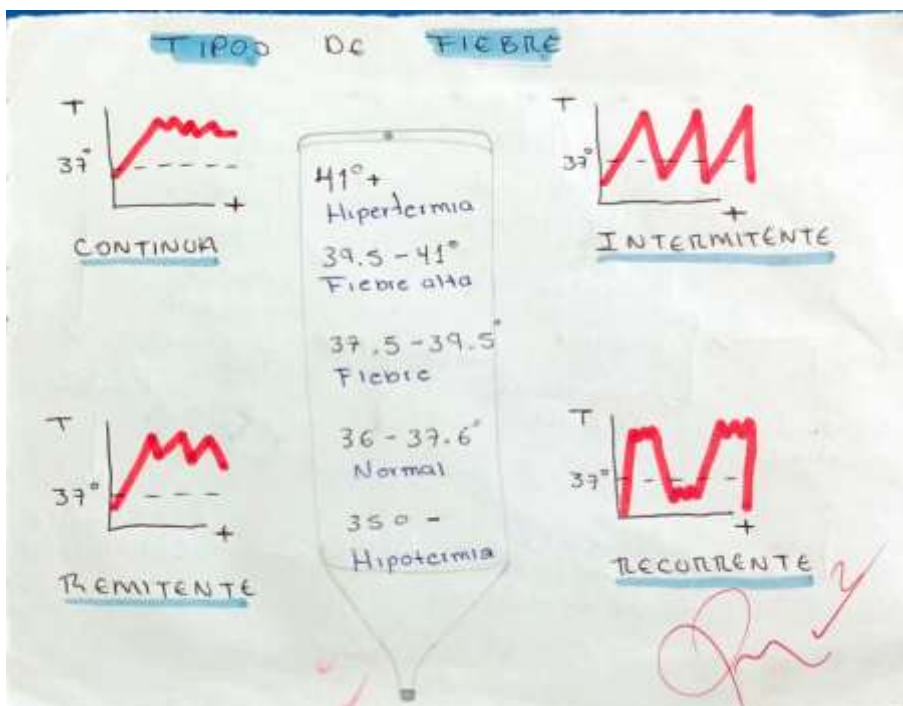 TIPOD DE FIEBRE
T
37°
+
CONTINUA
41°+
Hipertermia
39.5-41°
Fiebre alta
37.5-39.5°
Fiebre
36-37.6°
Normal
350-
Hipotermia
T
37°
+
INTERMITENTE
T
37°
+
REMITENTE
T
37°
+
RECURRENTE